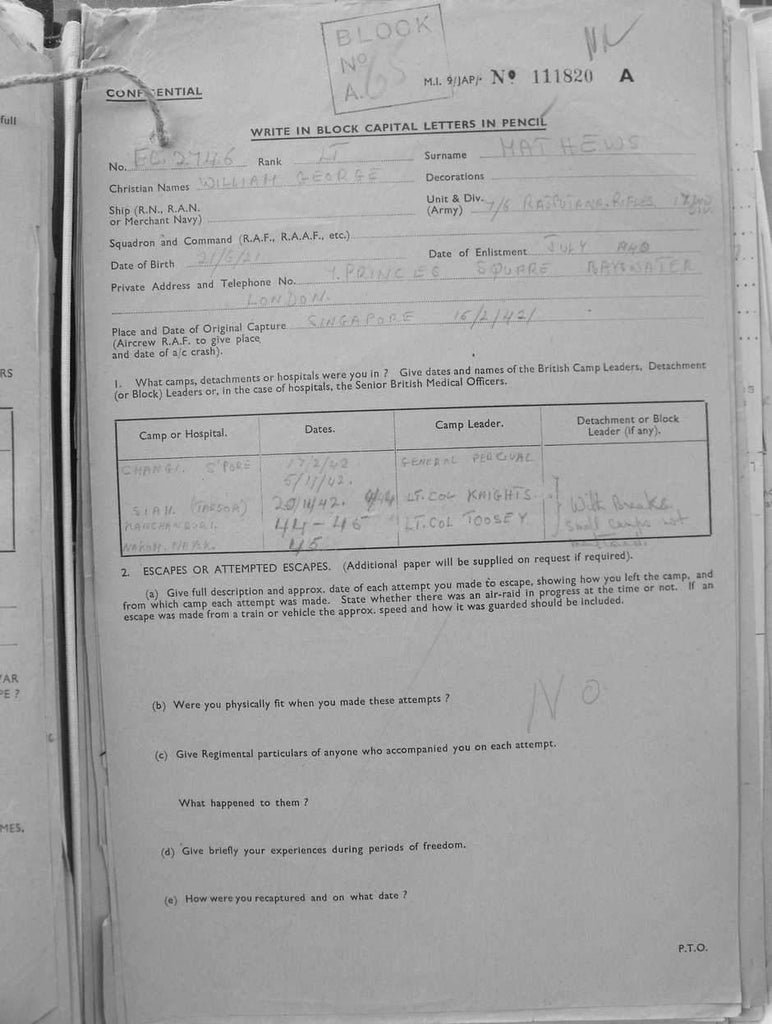 BLOCK
No
A. 65
M.I. 9/JAP/- No 111820 A
CONFIDENTIAL
WRITE IN BLOCK CAPITAL LETTERS IN PENCIL
No. EC. 2746 Rank LT Surname MATHEWS
Christian Names WILLIAM GEORGE Decorations
Ship (R.N., R.A.N. or Merchant Navy) Unit & Div. (Army) 7/6 RAJPUTANA RIFLES
Squadron and Command (R.A.F., R.A.A.F., etc.)
Date of Birth 21/5/21 Date of Enlistment JULY
Private Address and Telephone No. PRINCES SQUARE BAYSWATER
LONDON.
Place and Date of Original Capture SINGAPORE 15/2/42
(Aircrew R.A.F. to give place
and date of a/c crash).
1. What camps, detachments or hospitals were you in ? Give dates and names of the British Camp Leaders, Detachment
(or Block) Leaders or, in the case of hospitals, the Senior British Medical Officers.
Camp or Hospital. Dates. Camp Leader. Detachment or Block Leader (if any).
CHANGI. S'PORE 17/2/42 GENERAL PERCIVAL
5/11/42.
SIAM. (TARSOA) /11/42. LT. COL KNIGHTS With Breaks
44-45 LT. COL TOOSEY small camps not
NAKOM. NAYOK. 45
2. ESCAPES OR ATTEMPTED ESCAPES. (Additional paper will be supplied on request if required).
(a) Give full description and approx. date of each attempt you made to escape, showing how you left the camp, and
from which camp each attempt was made. State whether there was an air-raid in progress at the time or not. If an
escape was made from a train or vehicle the approx. speed and how it was guarded should be included.
NO
(b) Were you physically fit when you made these attempts ?
(c) Give Regimental particulars of anyone who accompanied you on each attempt.
What happened to them ?
(d) Give briefly your experiences during periods of freedom.
(e) How were you recaptured and on what date ?
P.T.O.